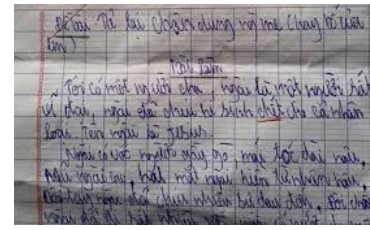 Đề bài: Tả lại chân dung mẹ (hay bố của
em)
Bài làm
Tôi có một người cha, ngài là một người rất
vĩ đại, ngài đã chịu hi sinh chết cho cả nhân
loại. Tên ngài là Jesus.
Ngài có vóc người gầy gò, mái tóc dài nâu.
ngài cao, mắt một ngài hiền từ nhân hậu.
tay ngài chịu nhiều sự đau đớn. Đôi chân
ngài đã đi rất nhiều